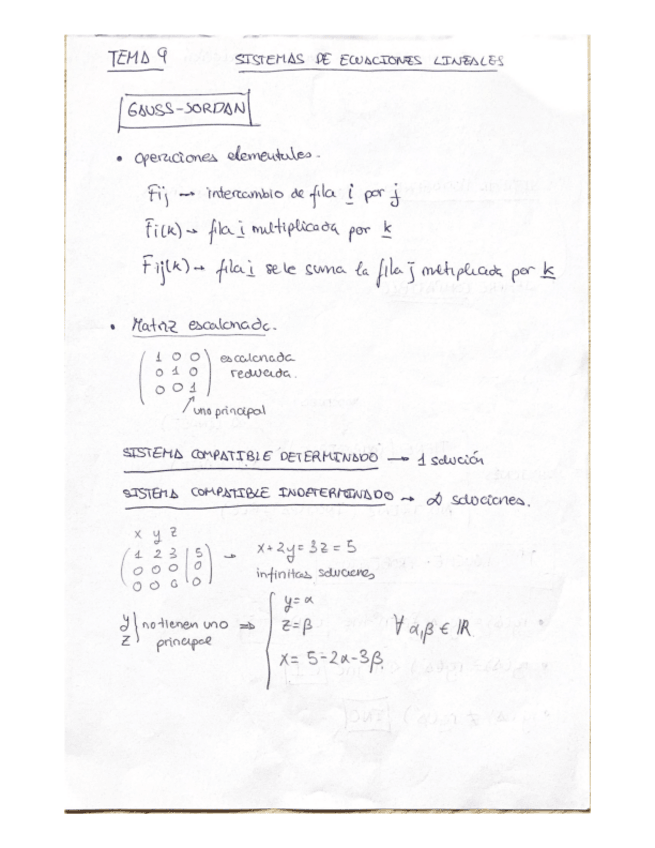 TEMA 9 SISTEMAS DE ECUACIONES LINEALES
GAUSS-JORDAN
• Operaciones elementales.
Fij → intercambio de fila i por j
Fi(k) → fila i multiplicada por k
Fij(k) → fila i se le suma la fila j multiplicada por k
• Matriz escalonada.
1 0 0 escalonada
0 1 0 reducida.
0 0 1
uno principal
SISTEMA COMPATIBLE DETERMINADO → 1 solución
SISTEMA COMPATIBLE INDETERMINADO → ∞ soluciones.
x y z
1 2 3 | 5 → x+2y=3z=5
0 0 0 | 0 infinitas soluciones
0 0 0 | 0
y z } no tienen uno principal ⇒ { y=α
z=β ∀ α,β ∈ IR
x= 5-2α-3β.